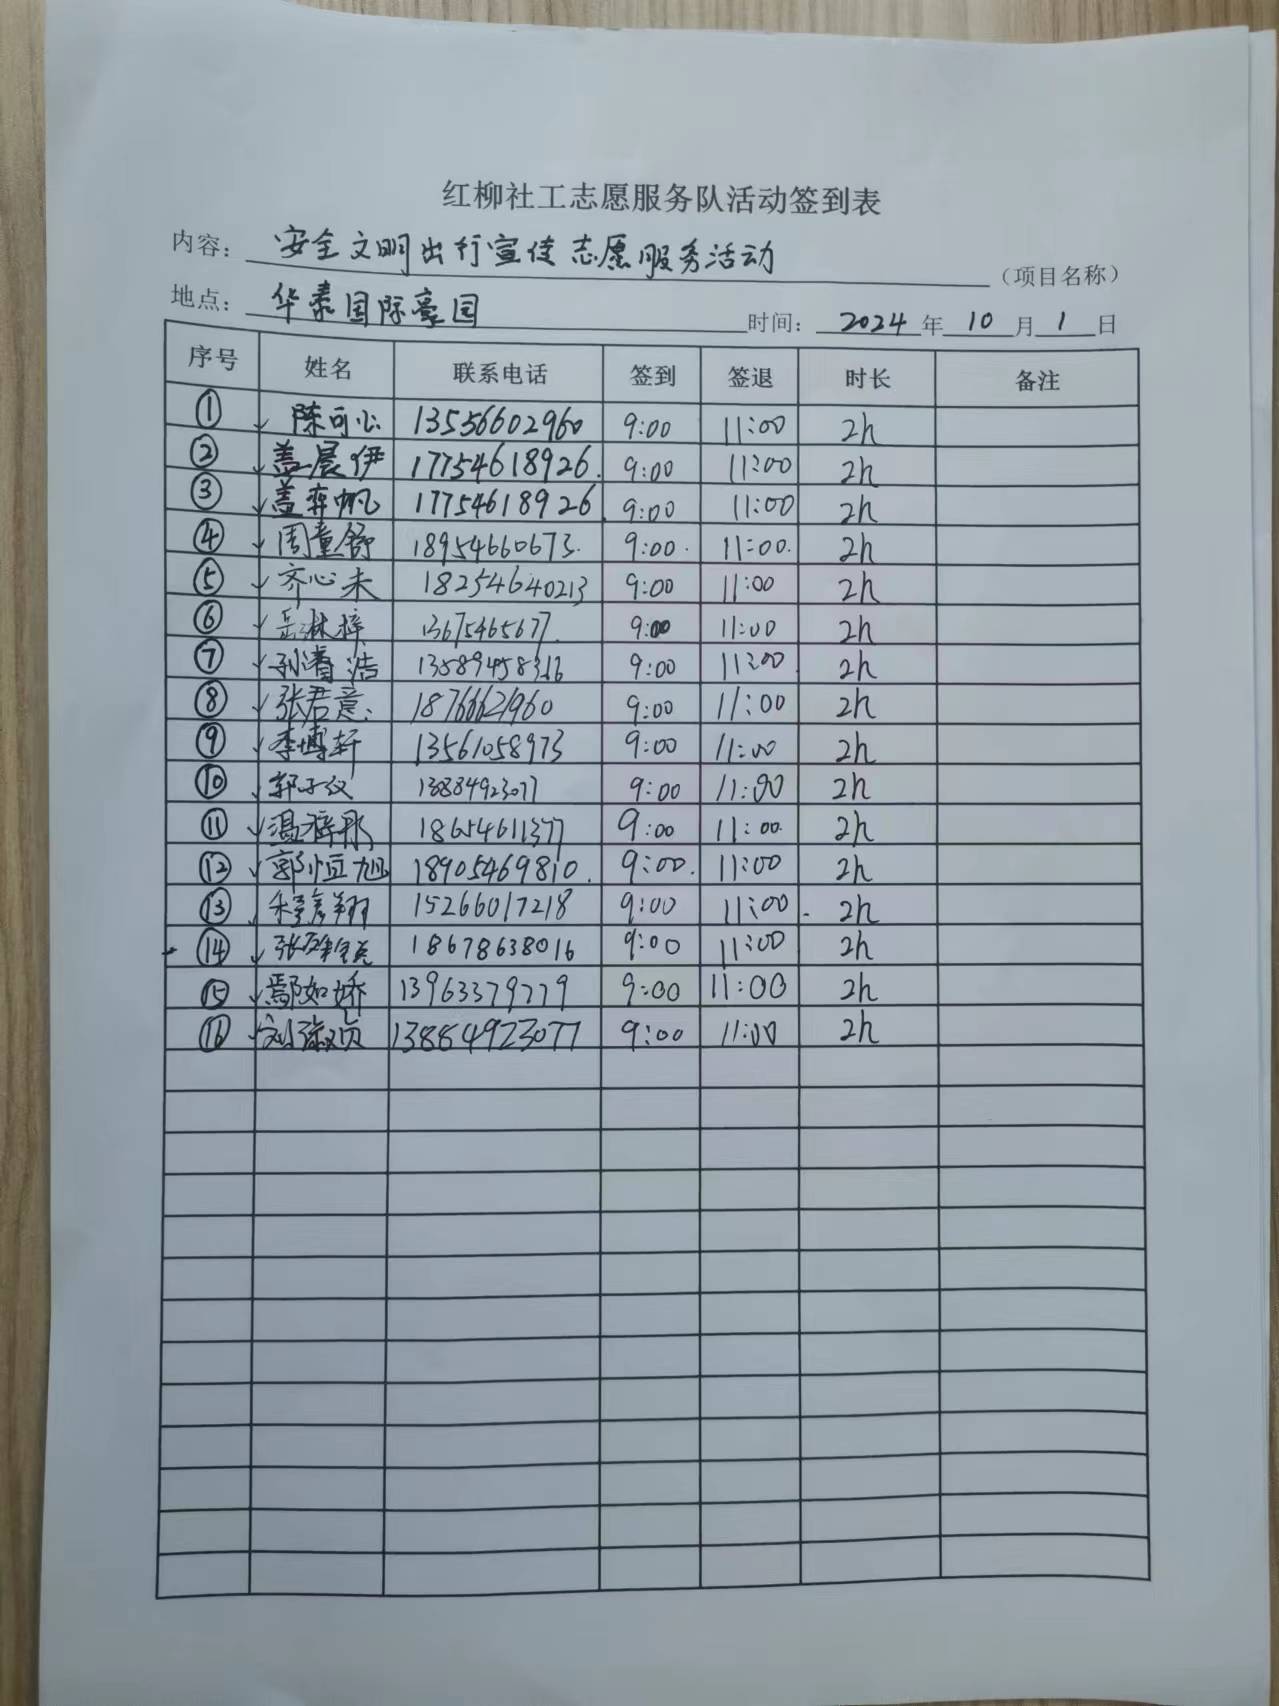 红柳社工志愿服务队活动签到表
内容： 安全文明出行宣传志愿服务活动 （项目名称）
地点： 华泰国际豪园 时间： 2024 年 10 月 1 日
序号 姓名 联系电话 签到 签退 时长 备注
① 陈可心 13556602960 9:00 11:00 2h
② 盖展伊 17754618926. 9:00 11:00 2h
③ 盖弈帆 17754618926. 9:00 11:00 2h
④ 周童舒 18954660673. 9:00. 11:00. 2h
⑤ 齐心未 18254640213 9:00 11:00 2h
⑥ 岳淋梓 13675465677. 9:00 11:00 2h
⑦ 孙清浩 9:00 11:00 2h
⑧ 张君意. 18766621960 9:00 11:00 2h
⑨ 李博轩 13561058973 9:00 11:00 2h
⑩ 郭子仪 13884923077 9:00 11:00 2h
⑪ 温梓彤 18654611377 9:00 11:00. 2h
⑫ 郭恒旭 18905469810. 9:00. 11:00 2h
⑬ 程彦翔 15266017218 9:00 11:00. 2h
⑭ 张 18678638016 9:00 11:00 2h
⑮ 鄢如娇 13963379779 9:00 11:00 2h
⑯ 刘淑贞 13884923077 9:00 11:00 2h